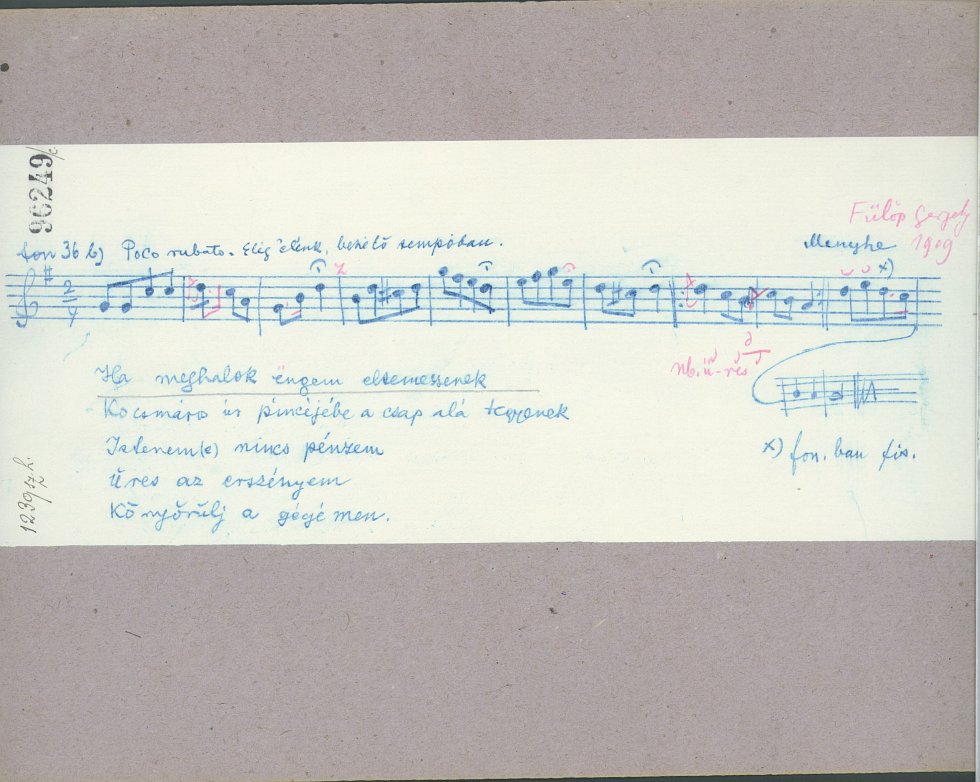 96249/c
Fülöp Gergely
1909
fon 36 b) Poco rubato. Elég élénk, beszélő tempóban.
Menyhe
x)
2/4
nb. ü-res
Ha meghalok éngem eltemessenek
Kocsmáros úr pincéjébe a csap alá tegyenek
Istenem(e) nincs pénzem
Üres az erszényem
Könyörülj a gégémen.
x) fon. ban fis.
1239 sz. h.